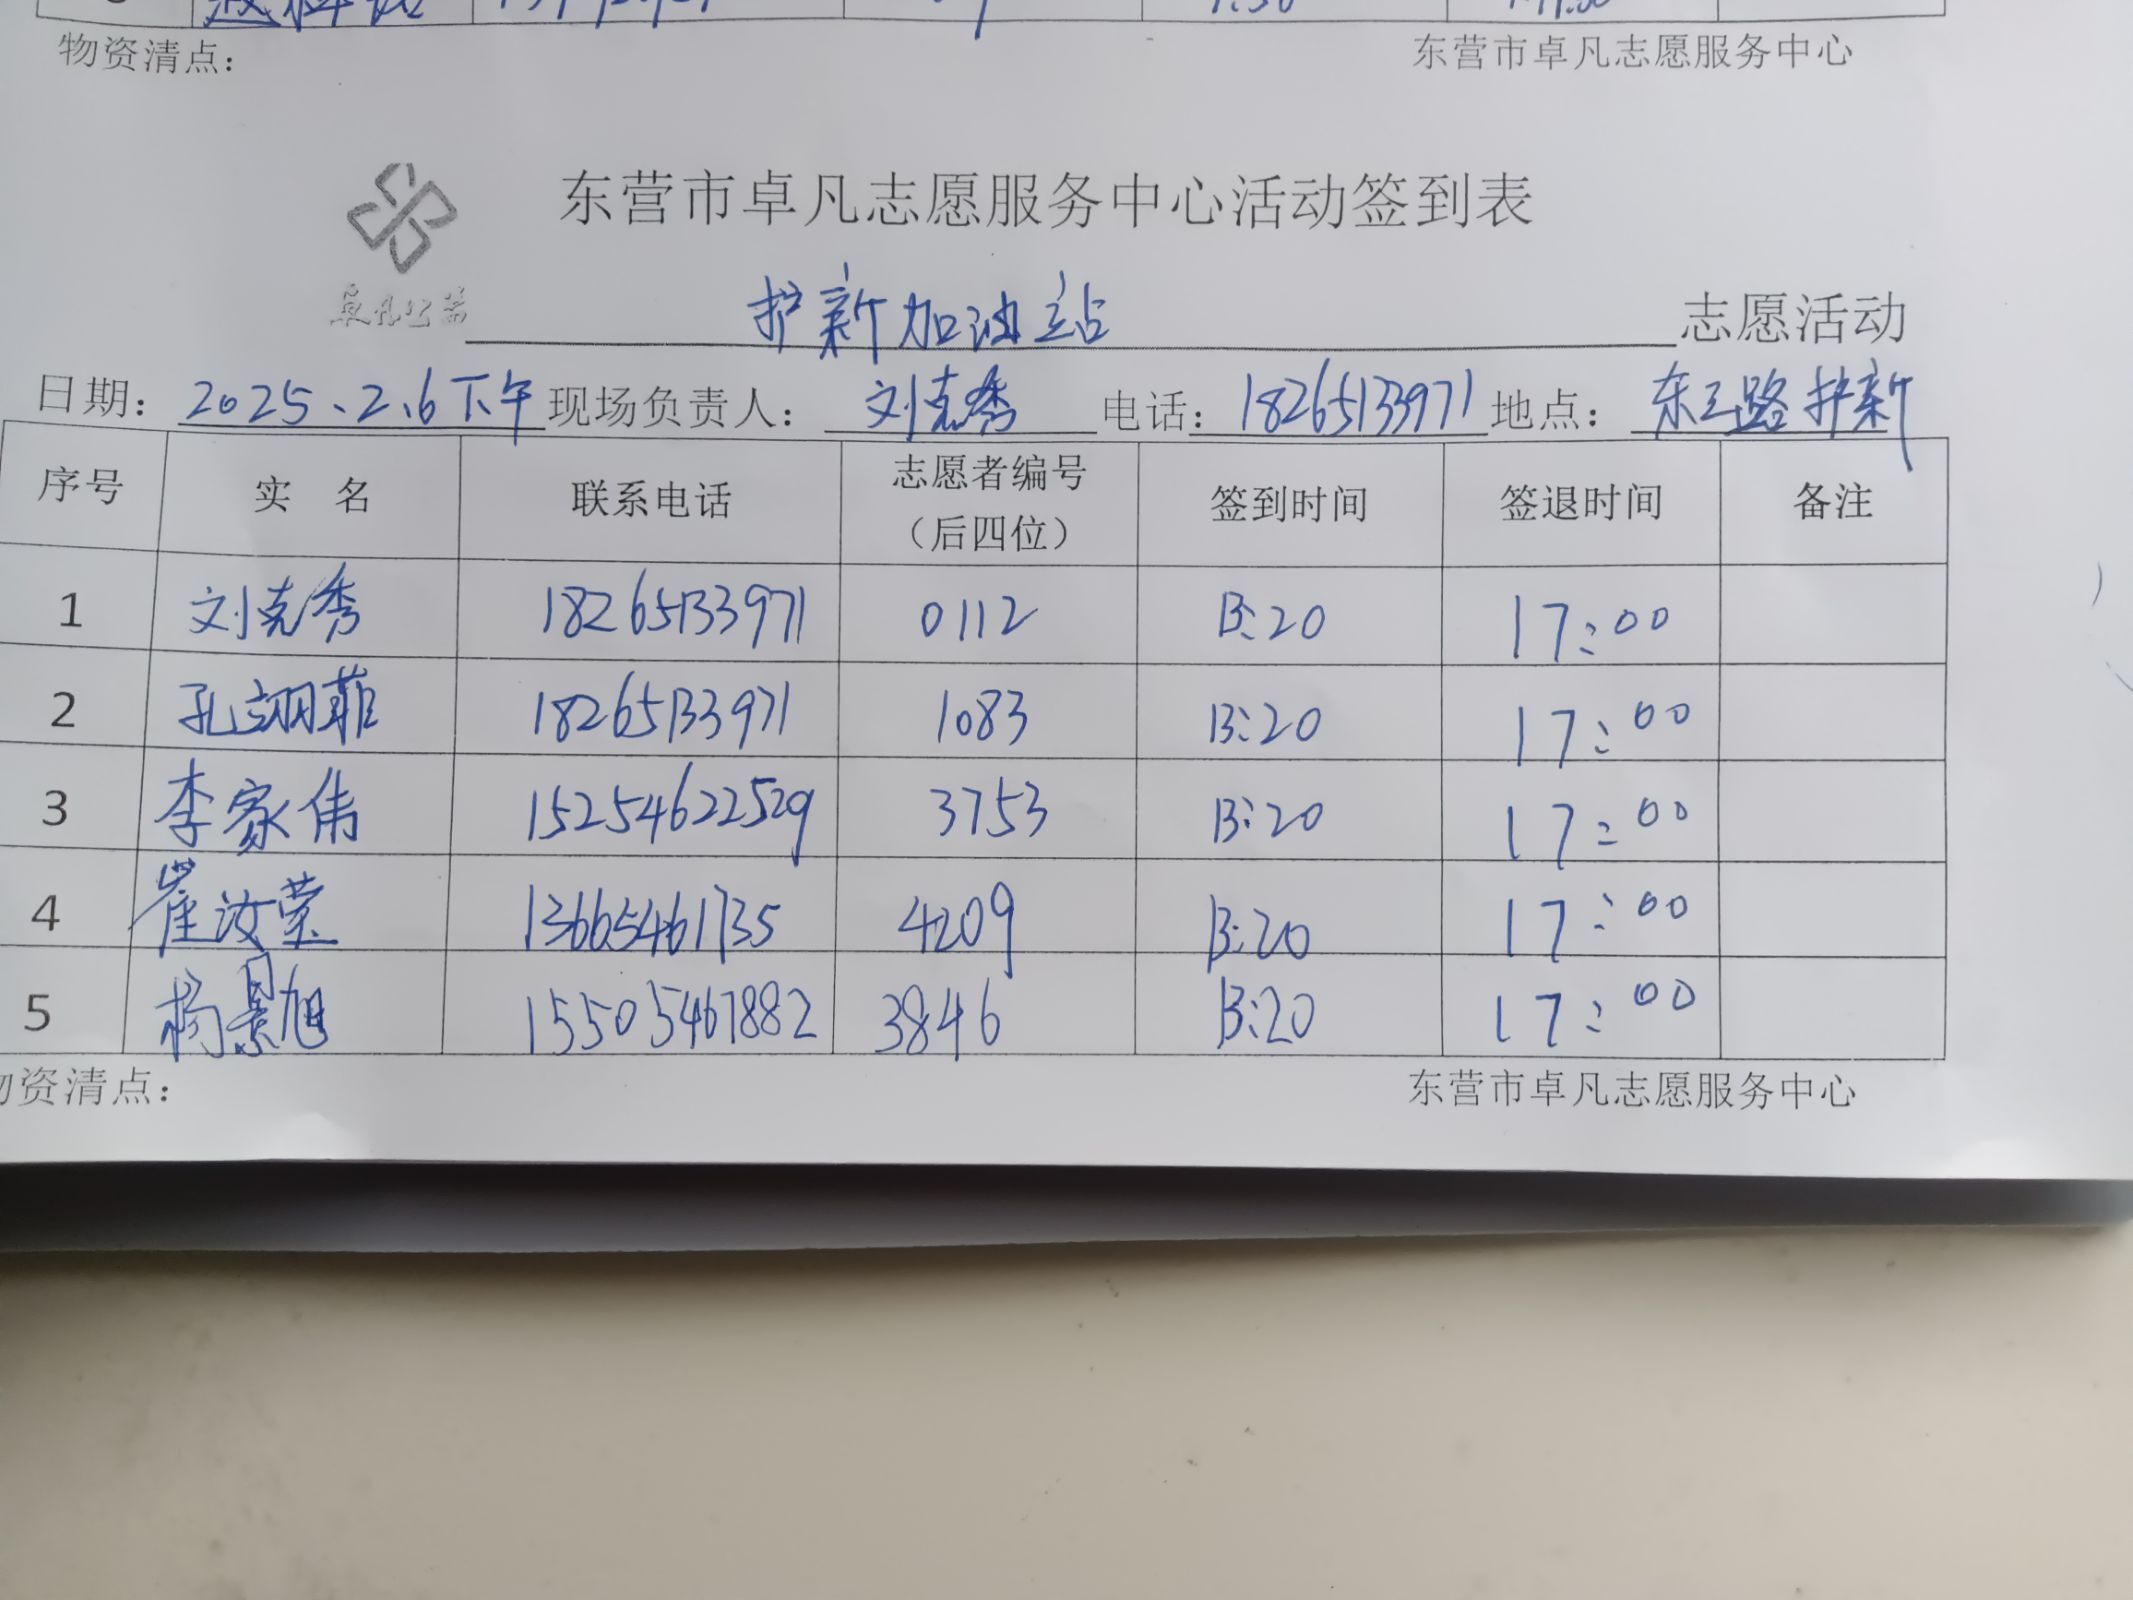 物资清点：
东营市卓凡志愿服务中心
东营市卓凡志愿服务中心活动签到表
卓凡公益
护新加油站 志愿活动
日期：2025、2、6下午 现场负责人：刘克秀 电话：18265133971 地点：东三路护新
序号 实 名 联系电话 志愿者编号（后四位） 签到时间 签退时间 备注
1 刘克秀 18265133971 0112 13:20 17:00
2 孔翊菲 18265133971 1083 13:20 17:00
3 李家伟 15254622529 3753 13:20 17:00
4 崔汝莹 13665461735 4209 13:20 17:00
5 杨景旭 15505467882 3846 13:20 17:00
物资清点：
东营市卓凡志愿服务中心